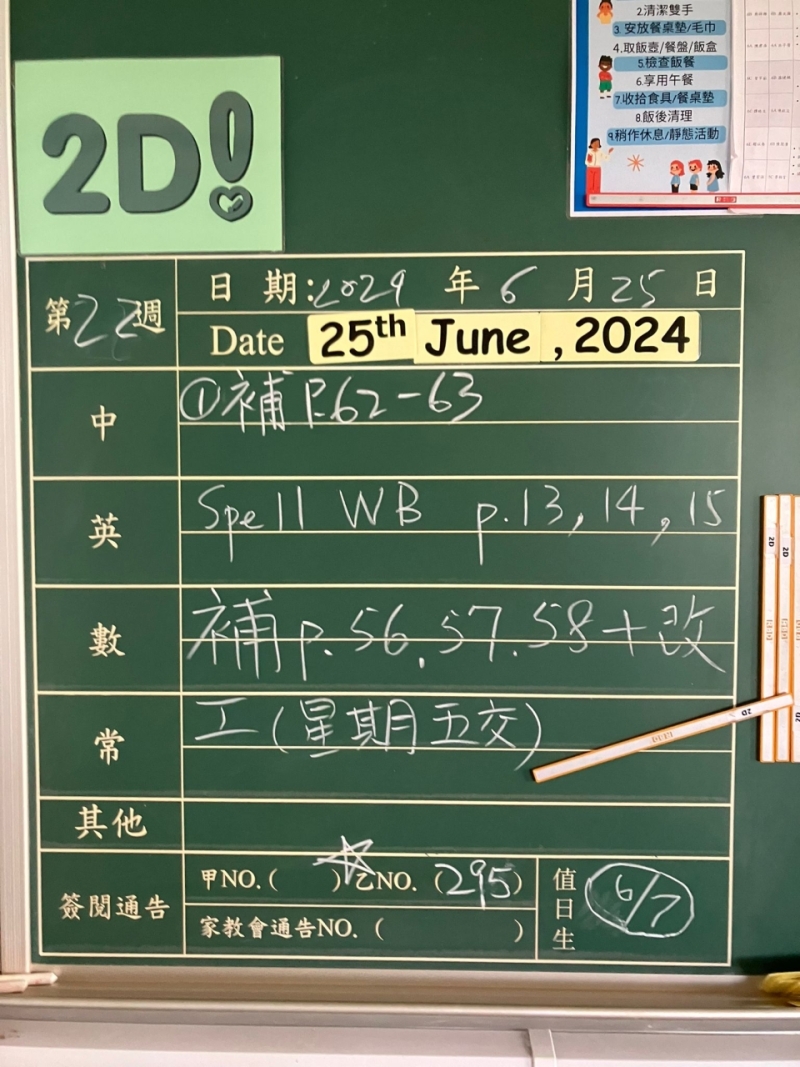 2.清潔雙手
3.安放餐桌墊/毛巾
4.取飯壺/餐盤/飯盒
5.檢查飯餐
6.享用午餐
7.收拾食具/餐桌墊
8.飯後清理
9.稍作休息/靜態活動
2D!
第22週
日期:2024年6月25日
Date 25th June, 2024
中
①補P.62-63
英
Spell WB p.13, 14, 15
數
補p.56.57.58+改
常
工(星期五交)
其他
簽閱通告
甲NO.( ) ☆乙NO.(295)
家教會通告NO.( )
值日生
6/7
2D
2D
2D